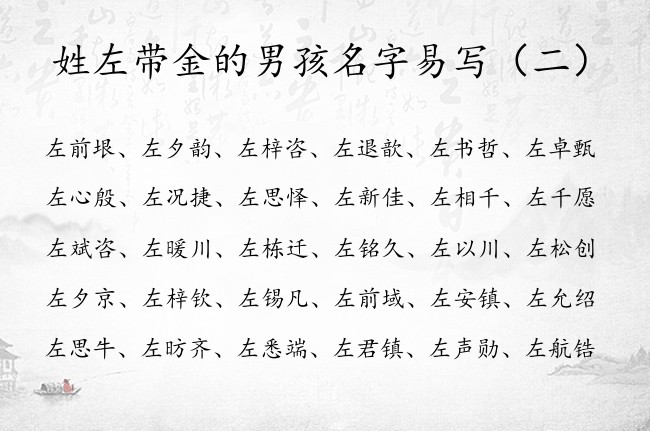 姓左带金的男孩名字易写（二）
左前垠、左夕韵、左梓咨、左退歆、左书哲、左卓甄
左心殷、左况捷、左思怿、左新佳、左相千、左千愿
左斌咨、左暖川、左栋迁、左铭久、左以川、左松创
左夕京、左梓钦、左锡凡、左前域、左安镇、左允绍
左思牛、左昉齐、左悉端、左君镇、左声勋、左航锆